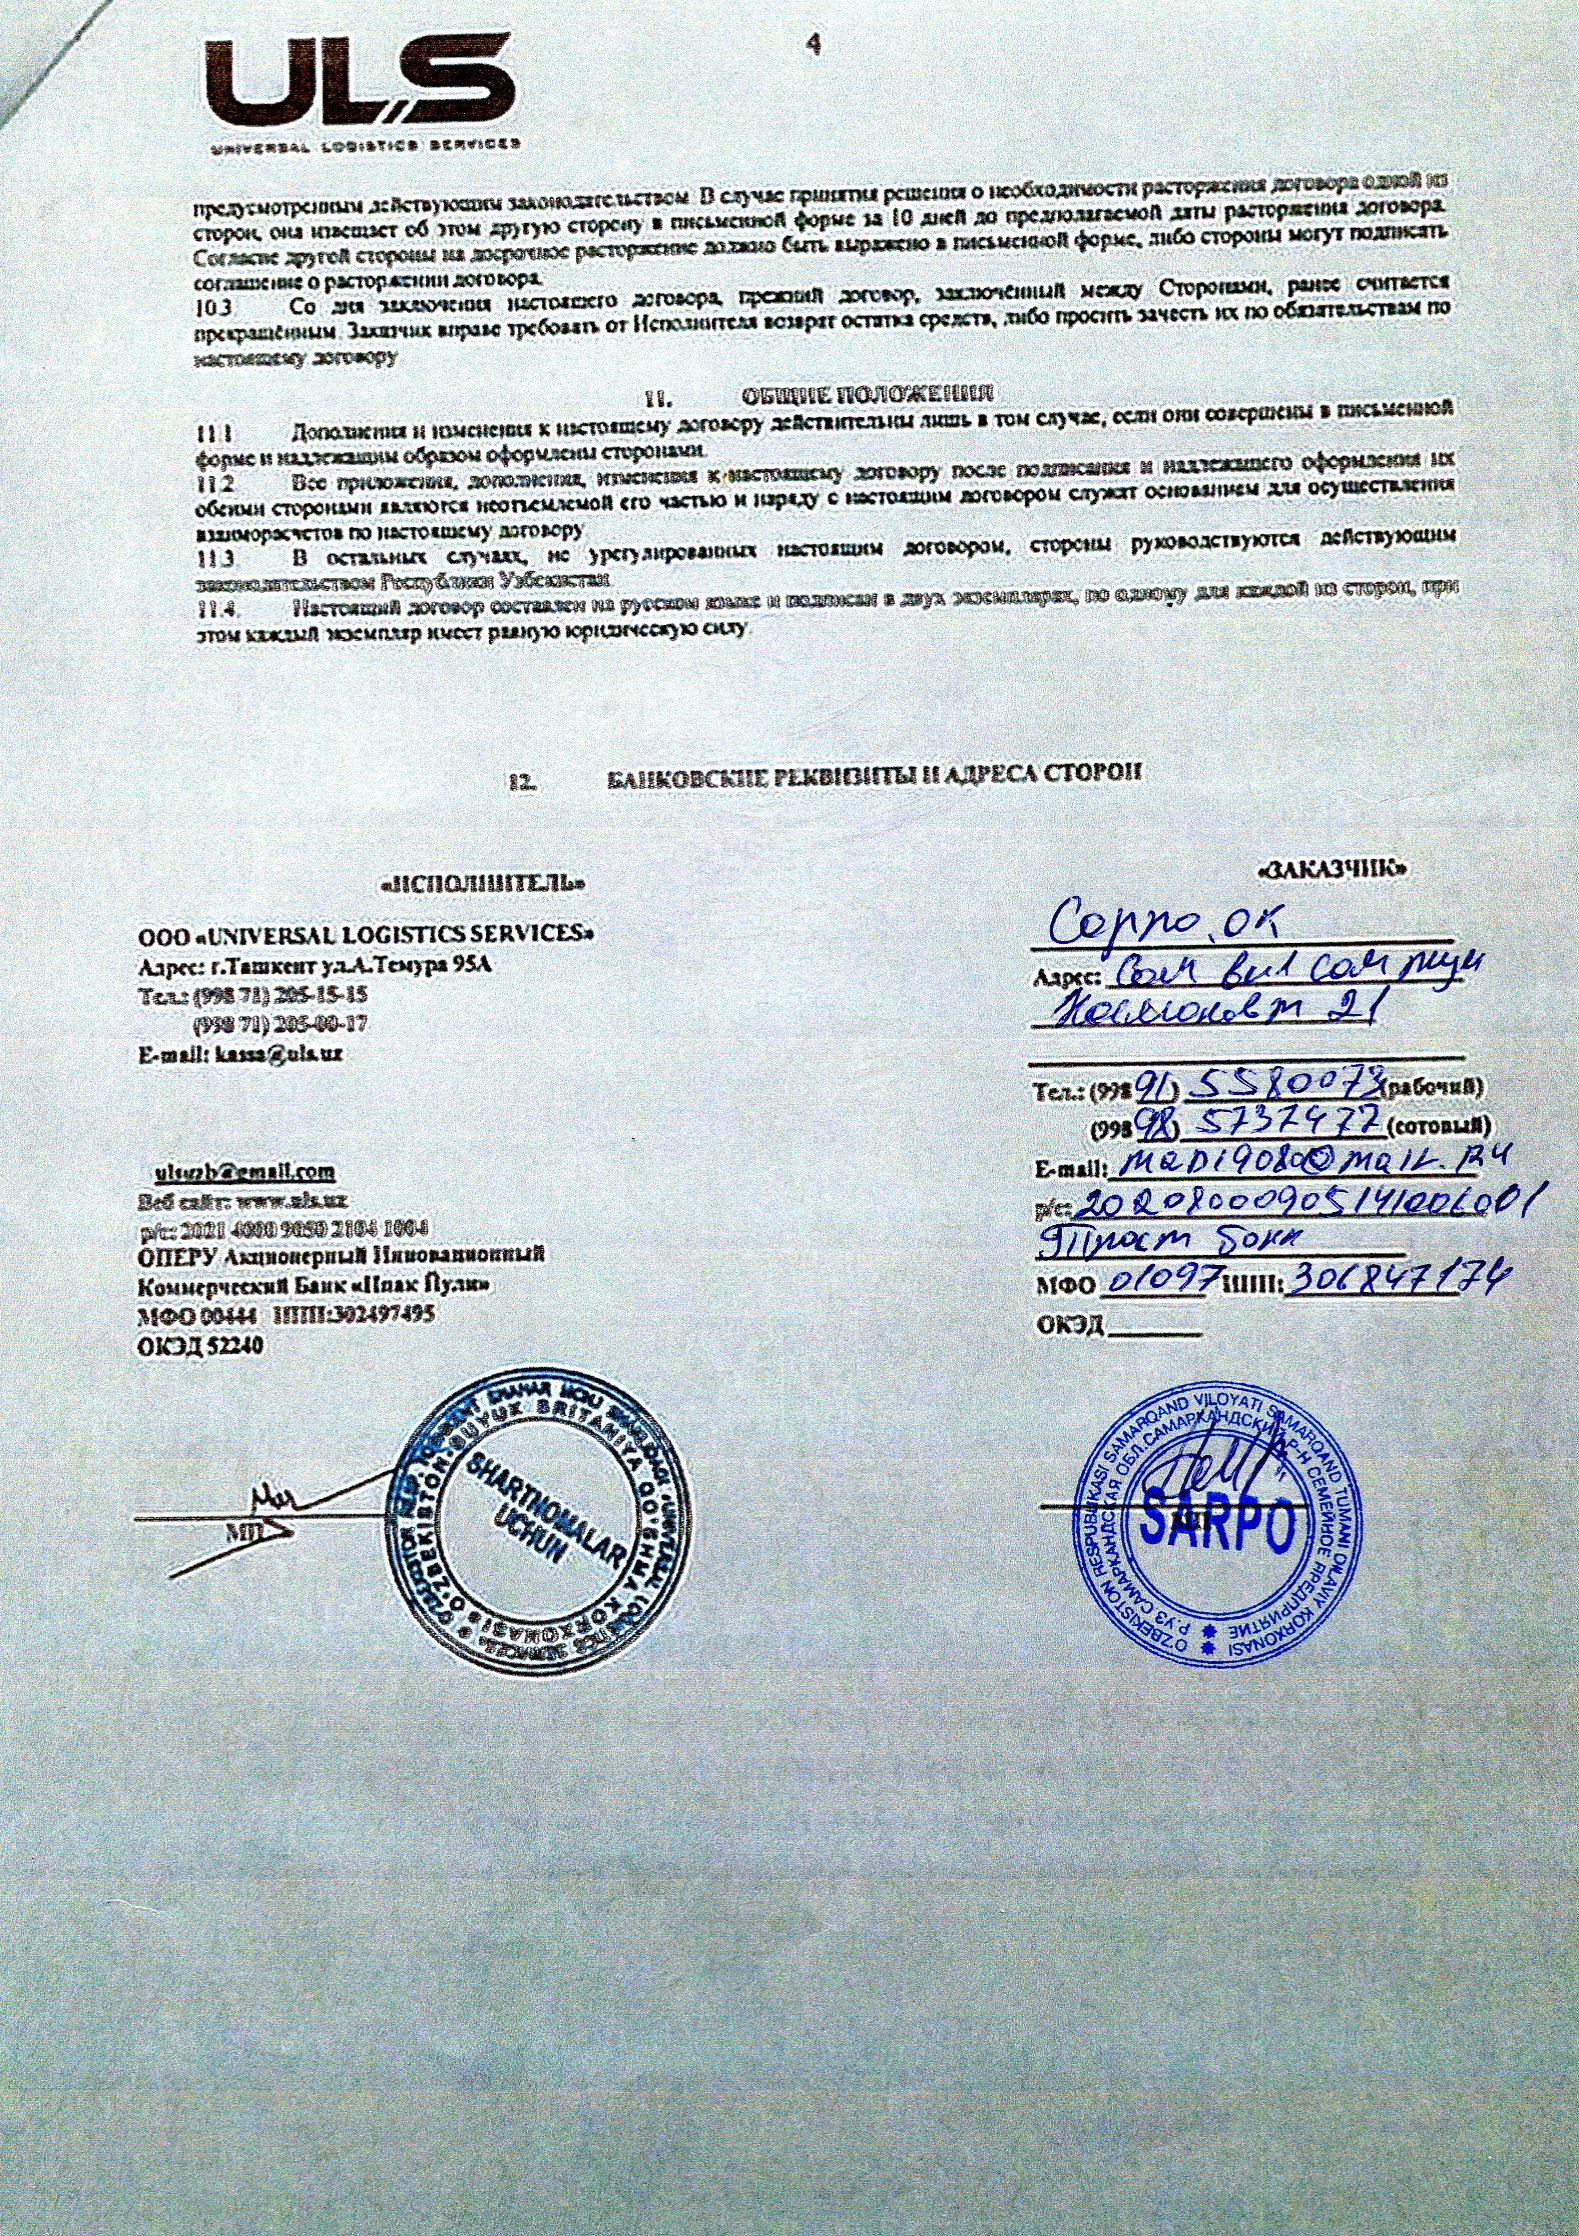 4
ULS
UNIVERSAL LOGISTICS SERVICES
предусмотренным действующим законодательством. В случае принятия решения о необходимости расторжения договора одной из
сторон, она извещает об этом другую сторону в письменной форме за 10 дней до предполагаемой даты расторжения договора.
Согласие другой стороны на досрочное расторжение должно быть выражено в письменной форме, либо стороны могут подписать
соглашение о расторжении договора.
10.3 Со дня заключения настоящего договора, прежний договор, заключенный между Сторонами, ранее считается
прекращённым. Заказчик вправе требовать от Исполнителя возврат остатка средств, либо просить зачесть их по обязательствам по
настоящему договору
11. ОБЩИЕ ПОЛОЖЕНИЯ
11.1 Дополнения и изменения к настоящему договору действительны лишь в том случае, если они совершены в письменной
форме и надлежащим образом оформлены сторонами.
11.2 Все приложения, дополнения, изменения к настоящему договору после подписания и надлежащего оформления их
обеими сторонами являются неотъемлемой его частью и наряду с настоящим договором служат основанием для осуществления
взаиморасчетов по настоящему договору
11.3 В остальных случаях, не урегулированных настоящим договором, стороны руководствуются действующим
законодательством Республики Узбекистан.
11.4. Настоящий договор составлен на русском языке и подписан в двух экземплярах, по одному для каждой из сторон, при
этом каждый экземпляр имеет равную юридическую силу.
12. БАНКОВСКИЕ РЕКВИЗИТЫ И АДРЕСА СТОРОН
«ИСПОЛНИТЕЛЬ»
ООО «UNIVERSAL LOGISTICS SERVICES»
Адрес: г.Ташкент ул.А.Темура 95А
Тел.: (998 71) 205-15-15
(998 71) 205-00-17
E-mail: kassa@uls.uz
ulsuzb@gmail.com
Веб сайт: www.uls.uz
р/с: 2021 4000 9050 2104 1004
ОПЕРУ Акционерный Инновационный
Коммерческий Банк «Ипак Йули»
МФО 00444 ИНН:302497495
ОКЭД 52240
МП
SHARTNOMALAR
UCHUN
O'ZBEKISTON-BUYUK BRITANIYA QO'SHMA KORXONASI
«ЗАКАЗЧИК»
Сарпо. ОК
Адрес: Сам вил сам
21
Тел.: (998 91) 5580073 (рабочий)
(998 98) 5737477 (сотовый)
E-mail: madi9080@mail.ru
р/с: 20208000905141006001
Траст банк
МФО 01097 ИНН: 306847174
ОКЭД
МП
SARPO
O'ZBEKISTON RESPUBLIKASI SAMARQAND VILOYATI SAMARQAND TUMANI OILAVIY KORXONASI
Р.УЗ САМАРКАНДСКАЯ ОБЛ.САМАРКАНДСКИЙ Р-Н СЕМЕЙНОЕ ПРЕДПРИЯТИЕ